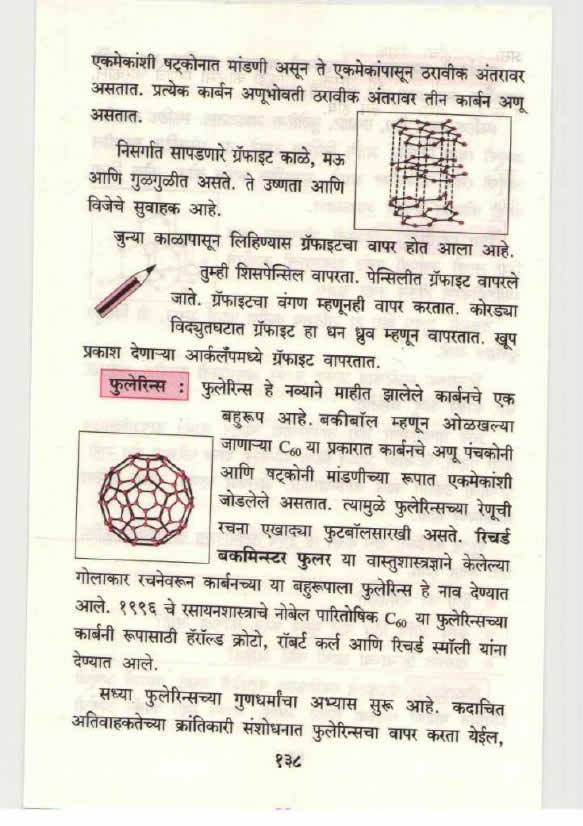 एकमेकांशी षट्कोनात मांडणी असून ते एकमेकांपासून ठरावीक अंतरावर
असतात. प्रत्येक कार्बन अणूभोवती ठरावीक अंतरावर तीन कार्बन अणू
असतात.
निसर्गात सापडणारे ग्रॅफाइट काळे, मऊ
आणि गुळगुळीत असते. ते उष्णता आणि
विजेचे सुवाहक आहे.
जुन्या काळापासून लिहिण्यास ग्रॅफाइटचा वापर होत आला आहे.
तुम्ही शिसपेन्सिल वापरता. पेन्सिलीत ग्रॅफाइट वापरले
जाते. ग्रॅफाइटचा वंगण म्हणूनही वापर करतात. कोरड्या
विद्युतघटात ग्रॅफाइट हा धन ध्रुव म्हणून वापरतात. खूप
प्रकाश देणाऱ्या आर्कलँपमध्ये ग्रॅफाइट वापरतात.
फुलेरिन्स : फुलेरिन्स हे नव्याने माहीत झालेले कार्बनचे एक
बहुरूप आहे. बकीबॉल म्हणून ओळखल्या
जाणाऱ्या C₆₀ या प्रकारात कार्बनचे अणू पंचकोनी
आणि षट्कोनी मांडणीच्या रूपात एकमेकांशी
जोडलेले असतात. त्यामुळे फुलेरिन्सच्या रेणूची
रचना एखाद्या फुटबॉलसारखी असते. रिचर्ड
बकमिन्स्टर फुलर या वास्तुशास्त्रज्ञाने केलेल्या
गोलाकार रचनेवरून कार्बनच्या या बहुरूपाला फुलेरिन्स हे नाव देण्यात
आले. १९९६ चे रसायनशास्त्राचे नोबेल पारितोषिक C₆₀ या फुलेरिन्सच्या
कार्बनी रूपासाठी हॅरॉल्ड क्रोटो, रॉबर्ट कर्ल आणि रिचर्ड स्मॉली यांना
देण्यात आले.
सध्या फुलेरिन्सच्या गुणधर्मांचा अभ्यास सुरू आहे. कदाचित
अतिवाहकतेच्या क्रांतिकारी संशोधनात फुलेरिन्सचा वापर करता येईल,
१३८